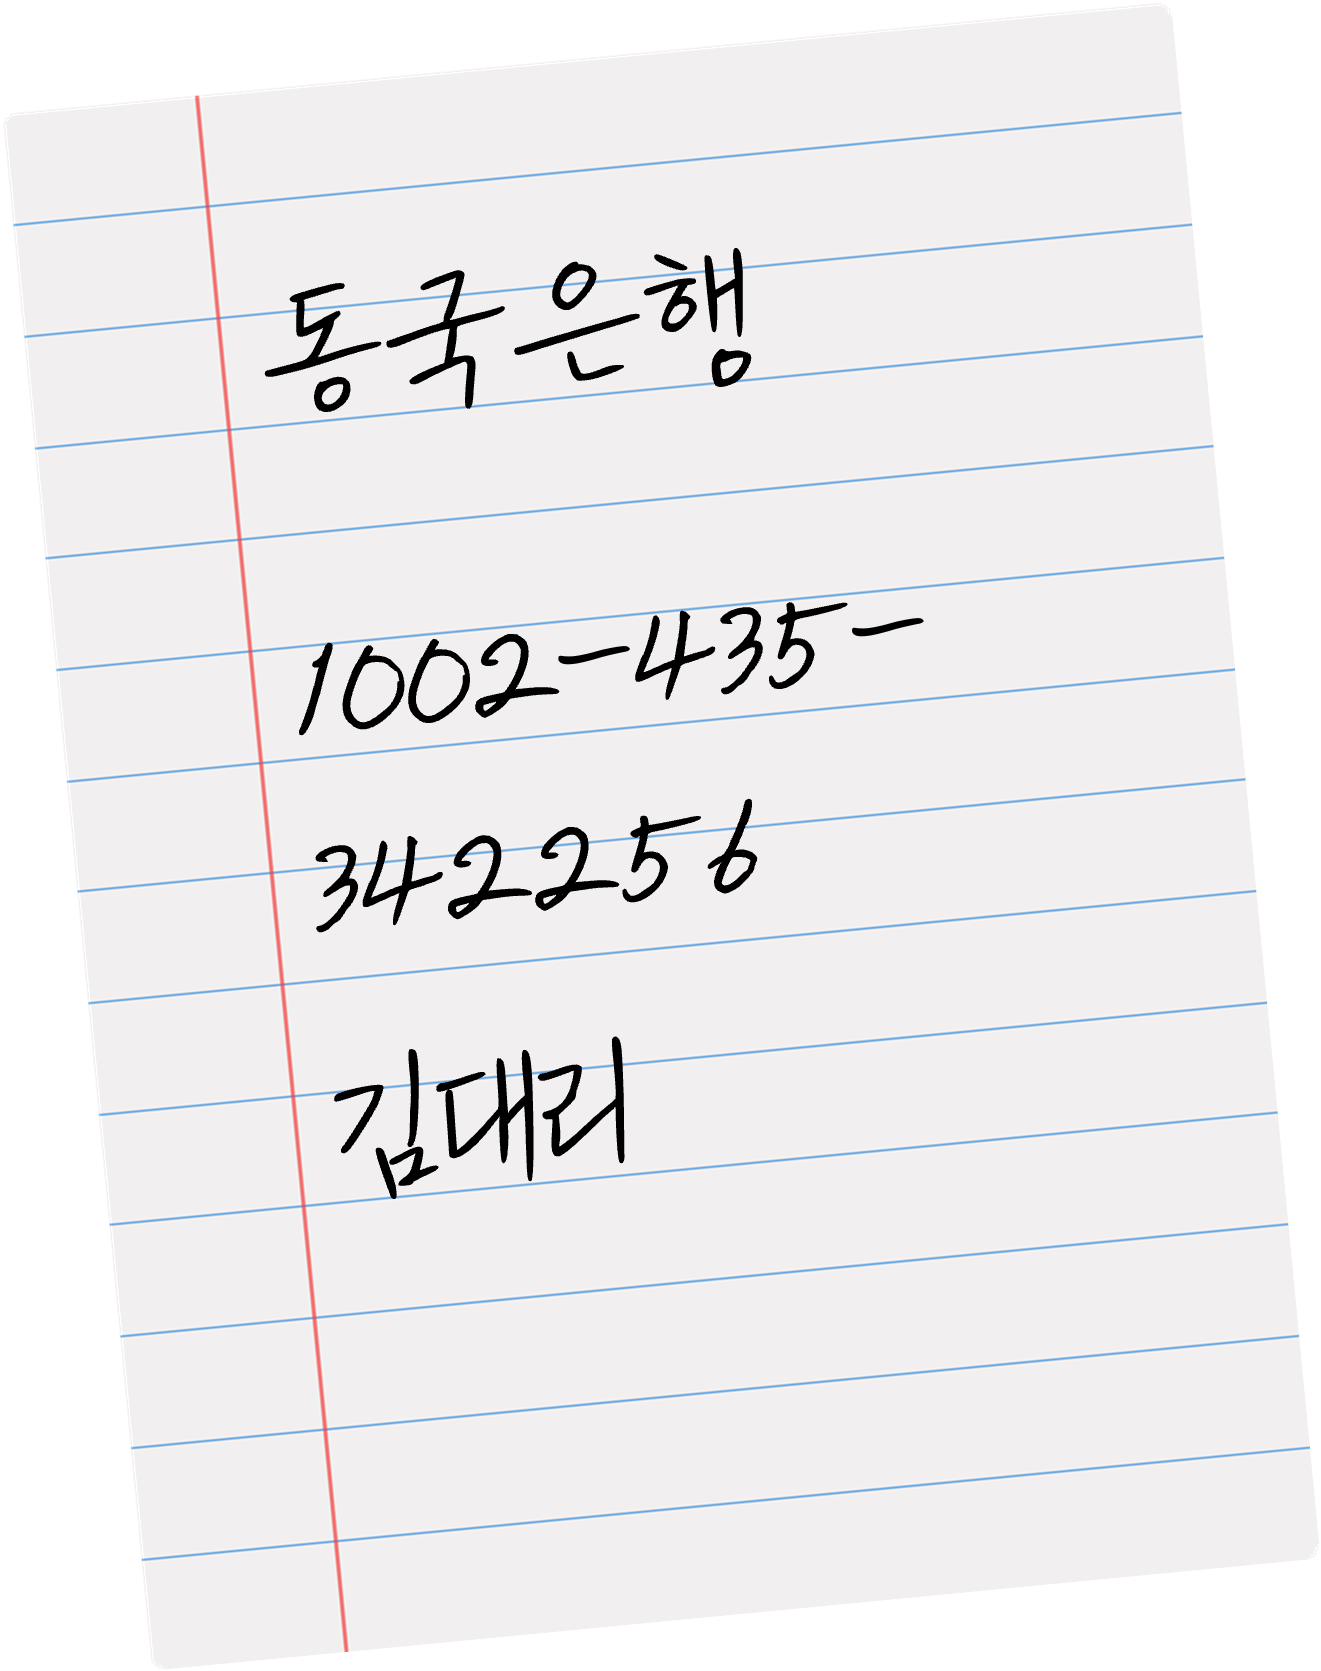 동국은행
1002-435-
342256
김대리